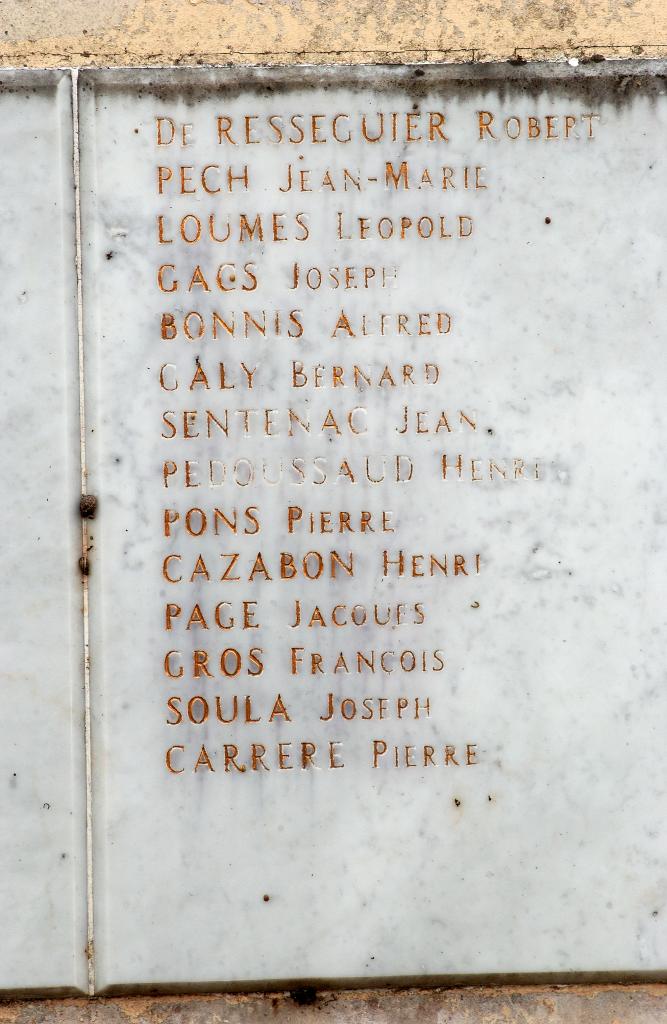 De RESSEGUIER ROBERT
PECH JEAN-MARIE
LOUMES LEOPOLD
GAGS JOSEPH
BONNIS ALFRED
GALY BERNARD
SENTENAC JEAN
PEDOUSSAUD HENRI
PONS PIERRE
CAZABON HENRI
PAGE JACQUES
GROS FRANÇOIS
SOULA JOSEPH
CARRERE PIERRE